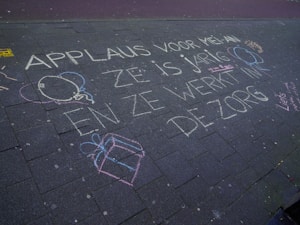 APPLAUS VOOR
ZE IS JARIG
EN ZE WERKT IN
DE ZORG